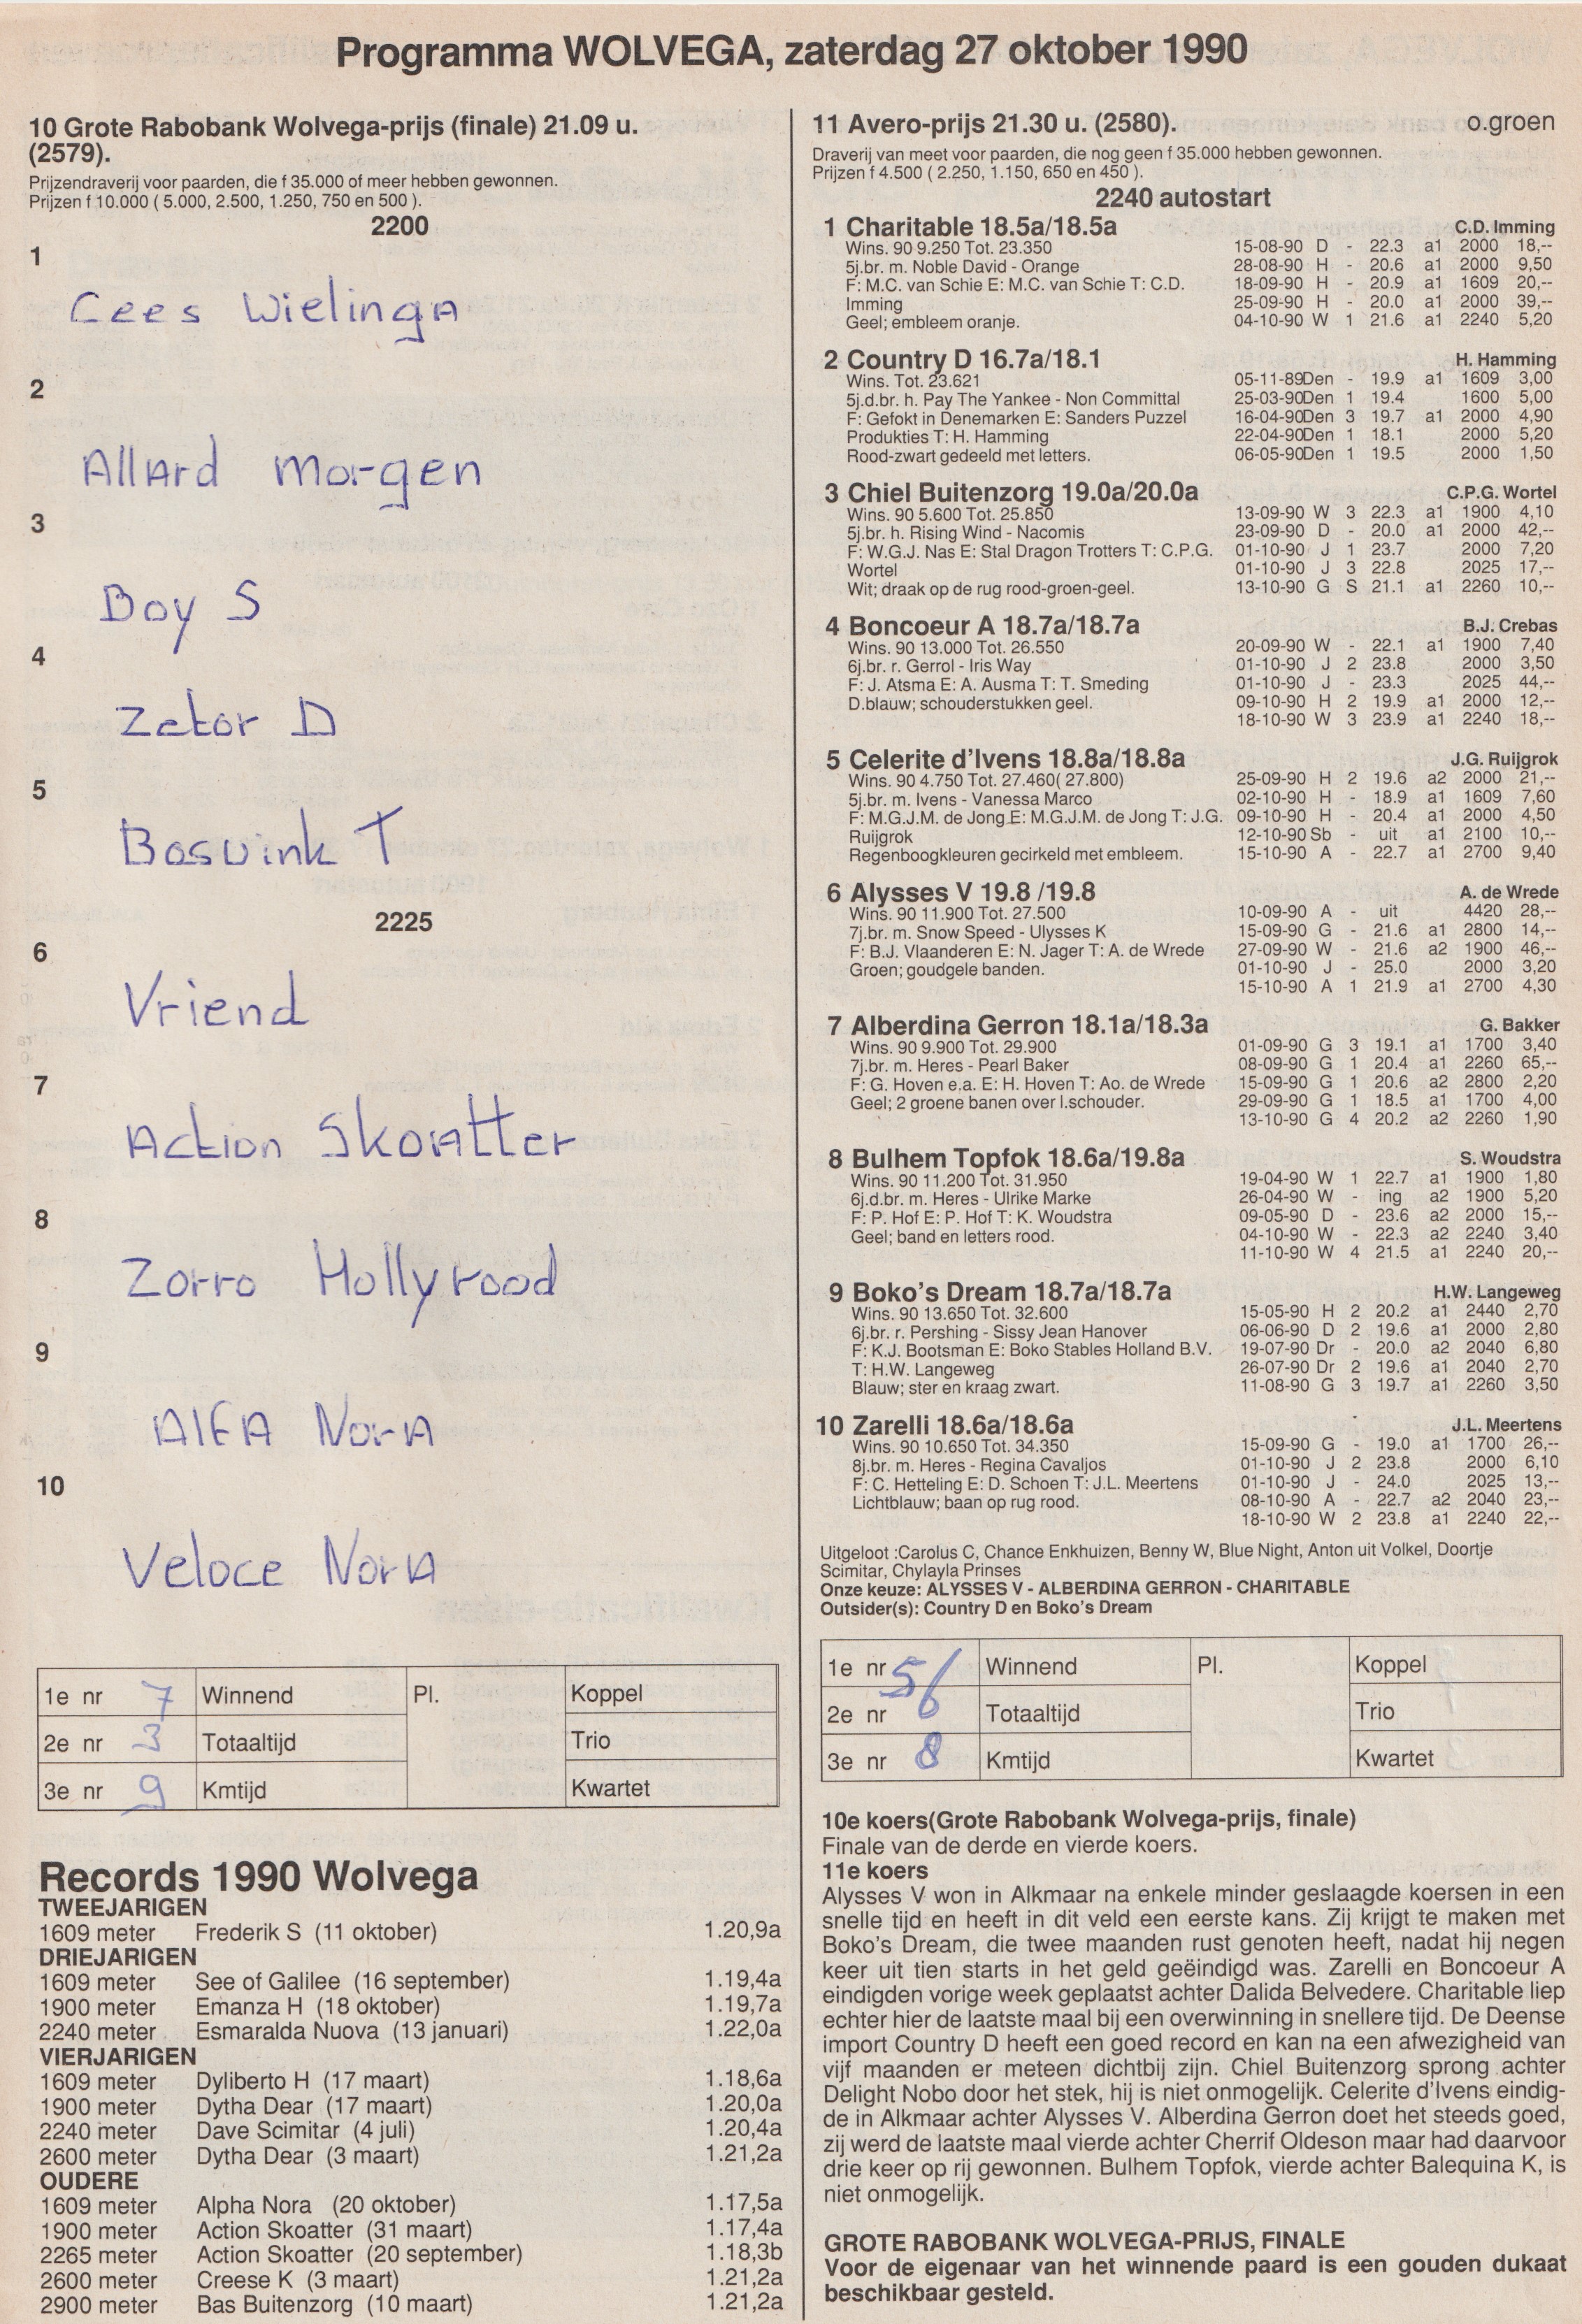 Programma WOLVEGA, zaterdag 27 oktober 1990
10 Grote Rabobank Wolvega-prijs (finale) 21.09 u.
(2579).
Prijzendraverij voor paarden, die f 35.000 of meer hebben gewonnen.
Prijzen f 10.000 ( 5.000, 2.500, 1.250, 750 en 500 ).
2200
1
Cees Wielinga
2
Allard Morgen
3
Boy S
4
Zetor D
5
Bosvink T
2225
6
Vriend
7
Action Skoatter
8
Zorro Hollyrood
9
AlfA NorA
10
Veloce NorA
1e nr 7 Winnend Pl. Koppel
2e nr 3 Totaaltijd Trio
3e nr 9 Kmtijd Kwartet
Records 1990 Wolvega
TWEEJARIGEN
1609 meter Frederik S (11 oktober) 1.20,9a
DRIEJARIGEN
1609 meter See of Galilee (16 september) 1.19,4a
1900 meter Emanza H (18 oktober) 1.19,7a
2240 meter Esmaralda Nuova (13 januari) 1.22,0a
VIERJARIGEN
1609 meter Dyliberto H (17 maart) 1.18,6a
1900 meter Dytha Dear (17 maart) 1.20,0a
2240 meter Dave Scimitar (4 juli) 1.20,4a
2600 meter Dytha Dear (3 maart) 1.21,2a
OUDERE
1609 meter Alpha Nora (20 oktober) 1.17,5a
1900 meter Action Skoatter (31 maart) 1.17,4a
2265 meter Action Skoatter (20 september) 1.18,3b
2600 meter Creese K (3 maart) 1.21,2a
2900 meter Bas Buitenzorg (10 maart) 1.21,2a
11 Avero-prijs 21.30 u. (2580). o.groen
Draverij van meet voor paarden, die nog geen f 35.000 hebben gewonnen.
Prijzen f 4.500 ( 2.250, 1.150, 650 en 450 ).
2240 autostart
1 Charitable 18.5a/18.5a C.D. Imming
Wins. 90 9.250 Tot. 23.350 15-08-90 D - 22.3 a1 2000 18,--
5j.br. m. Noble David - Orange 28-08-90 H - 20.6 a1 2000 9,50
F: M.C. van Schie E: M.C. van Schie T: C.D. 18-09-90 H - 20.9 a1 1609 20,--
Imming 25-09-90 H - 20.0 a1 2000 39,--
Geel; embleem oranje. 04-10-90 W 1 21.6 a1 2240 5,20
2 Country D 16.7a/18.1 H. Hamming
Wins. Tot. 23.621 05-11-89Den - 19.9 a1 1609 3,00
5j.d.br. h. Pay The Yankee - Non Committal 25-03-90Den 1 19.4 1600 5,00
F: Gefokt in Denemarken E: Sanders Puzzel 16-04-90Den 3 19.7 a1 2000 4,90
Produkties T: H. Hamming 22-04-90Den 1 18.1 2000 5,20
Rood-zwart gedeeld met letters. 06-05-90Den 1 19.5 2000 1,50
3 Chiel Buitenzorg 19.0a/20.0a C.P.G. Wortel
Wins. 90 5.600 Tot. 25.850 13-09-90 W 3 22.3 a1 1900 4,10
5j.br. h. Rising Wind - Nacomis 23-09-90 D - 20.0 a1 2000 42,--
F: W.G.J. Nas E: Stal Dragon Trotters T: C.P.G. 01-10-90 J 1 23.7 2000 7,20
Wortel 01-10-90 J 3 22.8 2025 17,--
Wit; draak op de rug rood-groen-geel. 13-10-90 G S 21.1 a1 2260 10,--
4 Boncoeur A 18.7a/18.7a B.J. Crebas
Wins. 90 13.000 Tot. 26.550 20-09-90 W - 22.1 a1 1900 7,40
6j.br. r. Gerrol - Iris Way 01-10-90 J 2 23.8 2000 3,50
F: J. Atsma E: A. Ausma T: T. Smeding 01-10-90 J - 23.3 2025 44,--
D.blauw; schouderstukken geel. 09-10-90 H 2 19.9 a1 2000 12,--
18-10-90 W 3 23.9 a1 2240 18,--
5 Celerite d'Ivens 18.8a/18.8a J.G. Ruijgrok
Wins. 90 4.750 Tot. 27.460( 27.800) 25-09-90 H 2 19.6 a2 2000 21,--
5j.br. m. Ivens - Vanessa Marco 02-10-90 H - 18.9 a1 1609 7,60
F: M.G.J.M. de Jong E: M.G.J.M. de Jong T: J.G. 09-10-90 H - 20.4 a1 2000 4,50
Ruijgrok 12-10-90 Sb - uit a1 2100 10,--
Regenboogkleuren gecirkeld met embleem. 15-10-90 A - 22.7 a1 2700 9,40
6 Alysses V 19.8 /19.8 A. de Wrede
Wins. 90 11.900 Tot. 27.500 10-09-90 A - uit 4420 28,--
7j.br. m. Snow Speed - Ulysses K 15-09-90 G - 21.6 a1 2800 14,--
F: B.J. Vlaanderen E: N. Jager T: A. de Wrede 27-09-90 W - 21.6 a2 1900 46,--
Groen; goudgele banden. 01-10-90 J - 25.0 2000 3,20
15-10-90 A 1 21.9 a1 2700 4,30
7 Alberdina Gerron 18.1a/18.3a G. Bakker
Wins. 90 9.900 Tot. 29.900 01-09-90 G 3 19.1 a1 1700 3,40
7j.br. m. Heres - Pearl Baker 08-09-90 G 1 20.4 a1 2260 65,--
F: G. Hoven e.a. E: H. Hoven T: Ao. de Wrede 15-09-90 G 1 20.6 a2 2800 2,20
Geel; 2 groene banen over l.schouder. 29-09-90 G 1 18.5 a1 1700 4,00
13-10-90 G 4 20.2 a2 2260 1,90
8 Bulhem Topfok 18.6a/19.8a S. Woudstra
Wins. 90 11.200 Tot. 31.950 19-04-90 W 1 22.7 a1 1900 1,80
6j.d.br. m. Heres - Ulrike Marke 26-04-90 W - ing a2 1900 5,20
F: P. Hof E: P. Hof T: K. Woudstra 09-05-90 D - 23.6 a2 2000 15,--
Geel; band en letters rood. 04-10-90 W - 22.3 a2 2240 3,40
11-10-90 W 4 21.5 a1 2240 20,--
9 Boko's Dream 18.7a/18.7a H.W. Langeweg
Wins. 90 13.650 Tot. 32.600 15-05-90 H 2 20.2 a1 2440 2,70
6j.br. r. Pershing - Sissy Jean Hanover 06-06-90 D 2 19.6 a1 2000 2,80
F: K.J. Bootsman E: Boko Stables Holland B.V. 19-07-90 Dr - 20.0 a2 2040 6,80
T: H.W. Langeweg 26-07-90 Dr 2 19.6 a1 2040 2,70
Blauw; ster en kraag zwart. 11-08-90 G 3 19.7 a1 2260 3,50
10 Zarelli 18.6a/18.6a J.L. Meertens
Wins. 90 10.650 Tot. 34.350 15-09-90 G - 19.0 a1 1700 26,--
8j.br. m. Heres - Regina Cavaljos 01-10-90 J 2 23.8 2000 6,10
F: C. Hetteling E: D. Schoen T: J.L. Meertens 01-10-90 J - 24.0 2025 13,--
Lichtblauw; baan op rug rood. 08-10-90 A - 22.7 a2 2040 23,--
18-10-90 W 2 23.8 a1 2240 22,--
Uitgeloot :Carolus C, Chance Enkhuizen, Benny W, Blue Night, Anton uit Volkel, Doortje
Scimitar, Chylayla Prinses
Onze keuze: ALYSSES V - ALBERDINA GERRON - CHARITABLE
Outsider(s): Country D en Boko's Dream
1e nr 5/ Winnend Pl. Koppel
2e nr 6 Totaaltijd Trio
3e nr 8 Kmtijd Kwartet
10e koers(Grote Rabobank Wolvega-prijs, finale)
Finale van de derde en vierde koers.
11e koers
Alysses V won in Alkmaar na enkele minder geslaagde koersen in een
snelle tijd en heeft in dit veld een eerste kans. Zij krijgt te maken met
Boko's Dream, die twee maanden rust genoten heeft, nadat hij negen
keer uit tien starts in het geld geëindigd was. Zarelli en Boncoeur A
eindigden vorige week geplaatst achter Dalida Belvedere. Charitable liep
echter hier de laatste maal bij een overwinning in snellere tijd. De Deense
import Country D heeft een goed record en kan na een afwezigheid van
vijf maanden er meteen dichtbij zijn. Chiel Buitenzorg sprong achter
Delight Nobo door het stek, hij is niet onmogelijk. Celerite d'Ivens eindig-
de in Alkmaar achter Alysses V. Alberdina Gerron doet het steeds goed,
zij werd de laatste maal vierde achter Cherrif Oldeson maar had daarvoor
drie keer op rij gewonnen. Bulhem Topfok, vierde achter Balequina K, is
niet onmogelijk.
GROTE RABOBANK WOLVEGA-PRIJS, FINALE
Voor de eigenaar van het winnende paard is een gouden dukaat
beschikbaar gesteld.